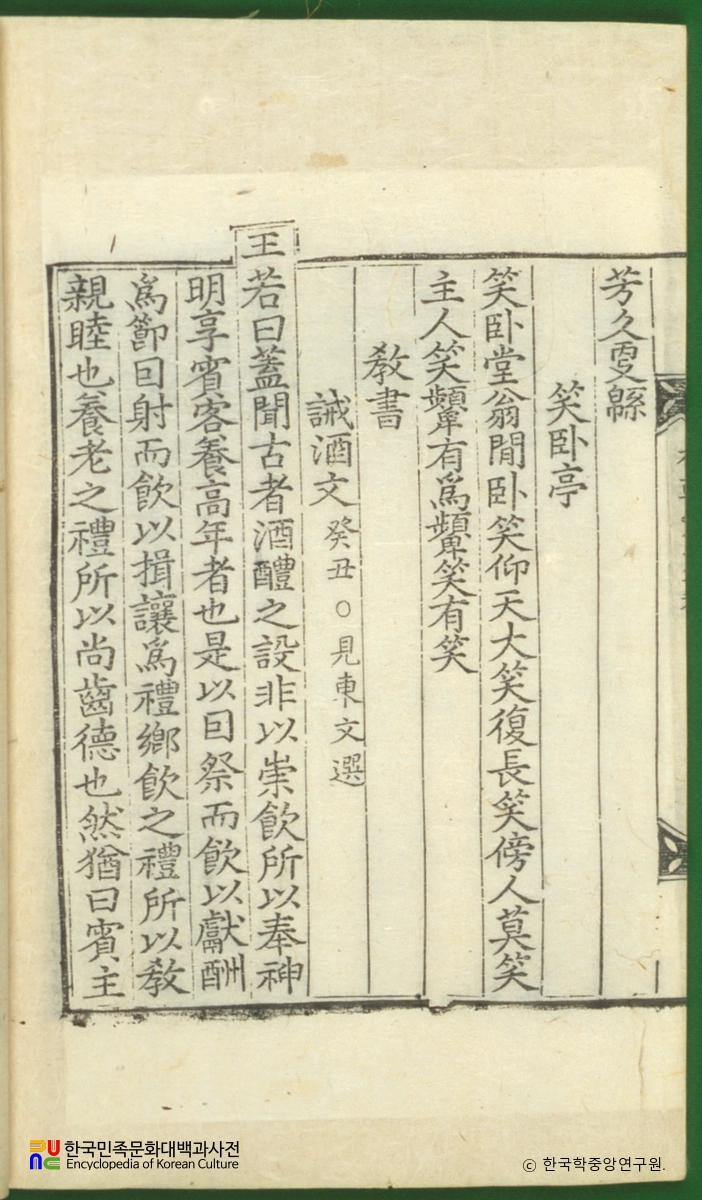 芳久更緜
笑卧亭
笑卧堂翁閒卧笑仰天大笑復長笑傍人莫笑
主人笑顰有爲顰笑有笑
敎書
誡酒文 癸丑○見東文選
王若曰蓋聞古者酒醴之設非以崇飮所以奉神
明享賓客養高年者也是以因祭而飮以獻酬
爲節因射而飮以揖讓爲禮鄕飮之禮所以敎
親睦也養老之禮所以尙齒德也然猶曰賓主
한국민족문화대백과사전
Encyclopedia of Korean Culture
© 한국학중앙연구원.